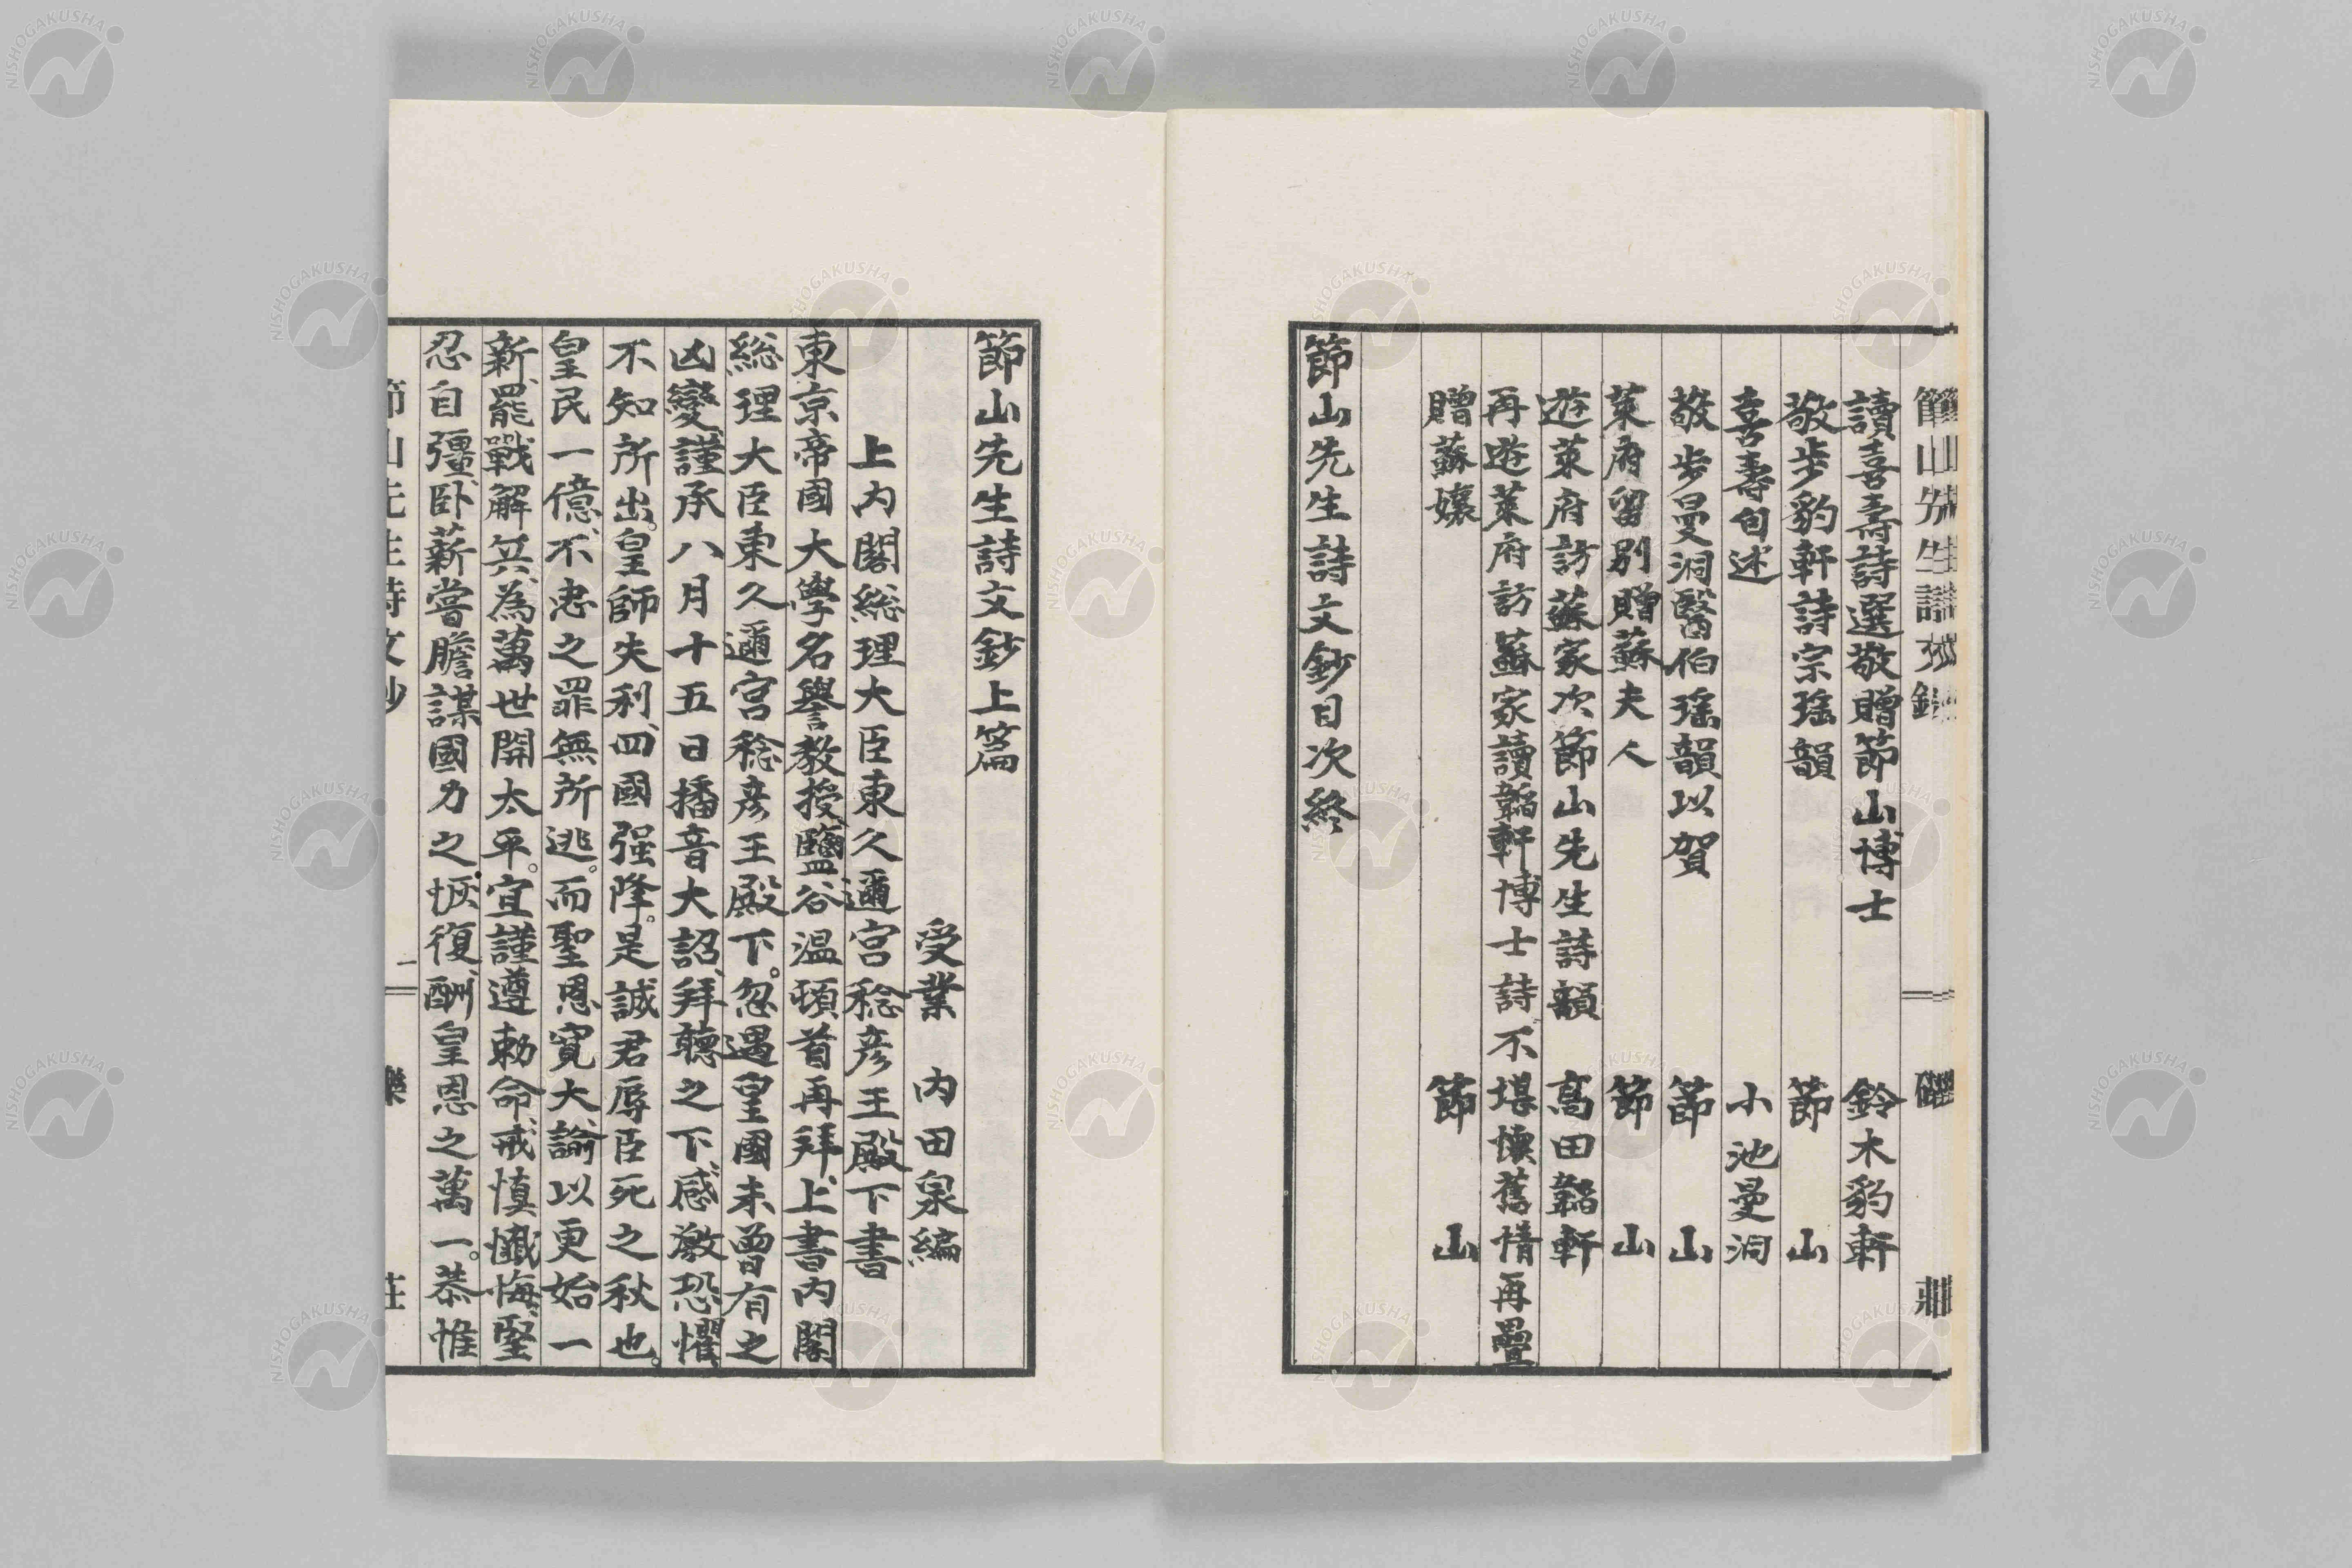 讀喜壽詩選敬贈節山博士 鈴木豹軒
敬步豹軒詩宗瑤韻 節山
喜壽自述 小池曼洞
敬步曼洞醫伯瑤韻以賀 節山
萊府留別贈蘇夫人 節山
遊萊府訪蘇家次節山先生詩韻 高田韜軒
再遊萊府訪蘇家讀韜軒博士詩不堪懷舊情再疊
贈蘇孃 節山
節山先生詩文鈔目次終
節山先生詩文鈔上篇
受業 內田泉編
上內閣総理大臣東久邇宮稔彥王殿下書
東京帝國大學名譽教授鹽谷溫頓首再拜、上書內閣
総理大臣東久邇宮稔彥王殿下。忽遇皇國未曾有之
凶變、謹承八月十五日播音大詔、拜聽之下、感激恐懼
不知所出。皇師失利、四國强降。是誠君辱臣死之秋也。
皇民一億、不忠之罪無所逃。而聖恩寬大、諭以更始一
新、罷戰解兵、為萬世開太平。宜謹遵勅命、戒慎懺悔、堅
忍自彊、臥薪嘗膽、謀國力之恢復、酬皇恩之萬一。恭惟
節山先生詩文鈔 一
NISHOGAKUSHA